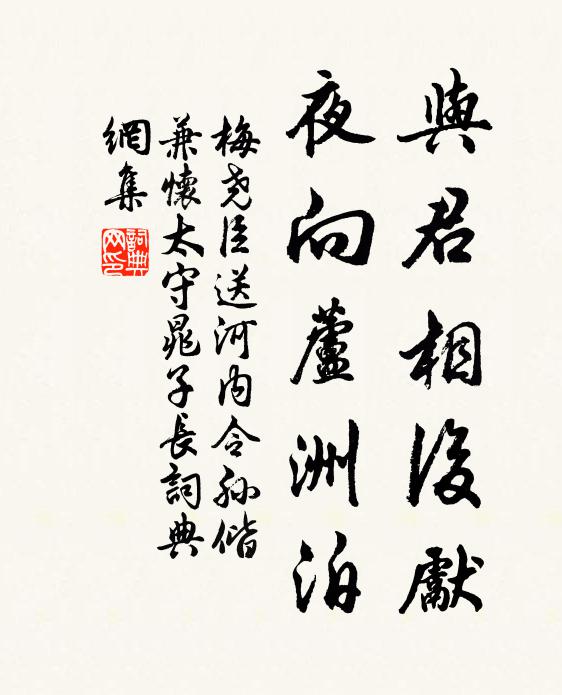 與君相後獻
夜向蘆洲泊
梅堯臣送河内令孫偕
兼懷太守晁子長詞典
網集
詞典
网印